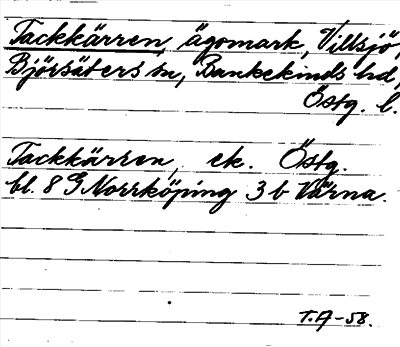 Tackkärren, ägomark, Villsjö,
Björsäters sn, Bankekinds hd,
Östg. l.
Tackkärren, ek. Östg.
bl. 8 G Norrköping 3 b Värna.
T.A-58.